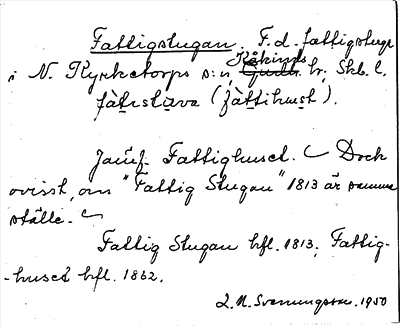 Fattigstugan. F.d. fattigstuga
i N. Kyrketorps s:n, Kåkinds hr, Skb. l.
fàt̬ɩstɷva (fàt̬ɩhʉst).
Jämf. Fattighuset. Dock
ovisst, om "Fattig Stugan" 1813 är samma
ställe.
Fattig Stugan hfl. 1813; Fattig-
-huset hfl. 1862.
L. M. Svenungsson. 1950